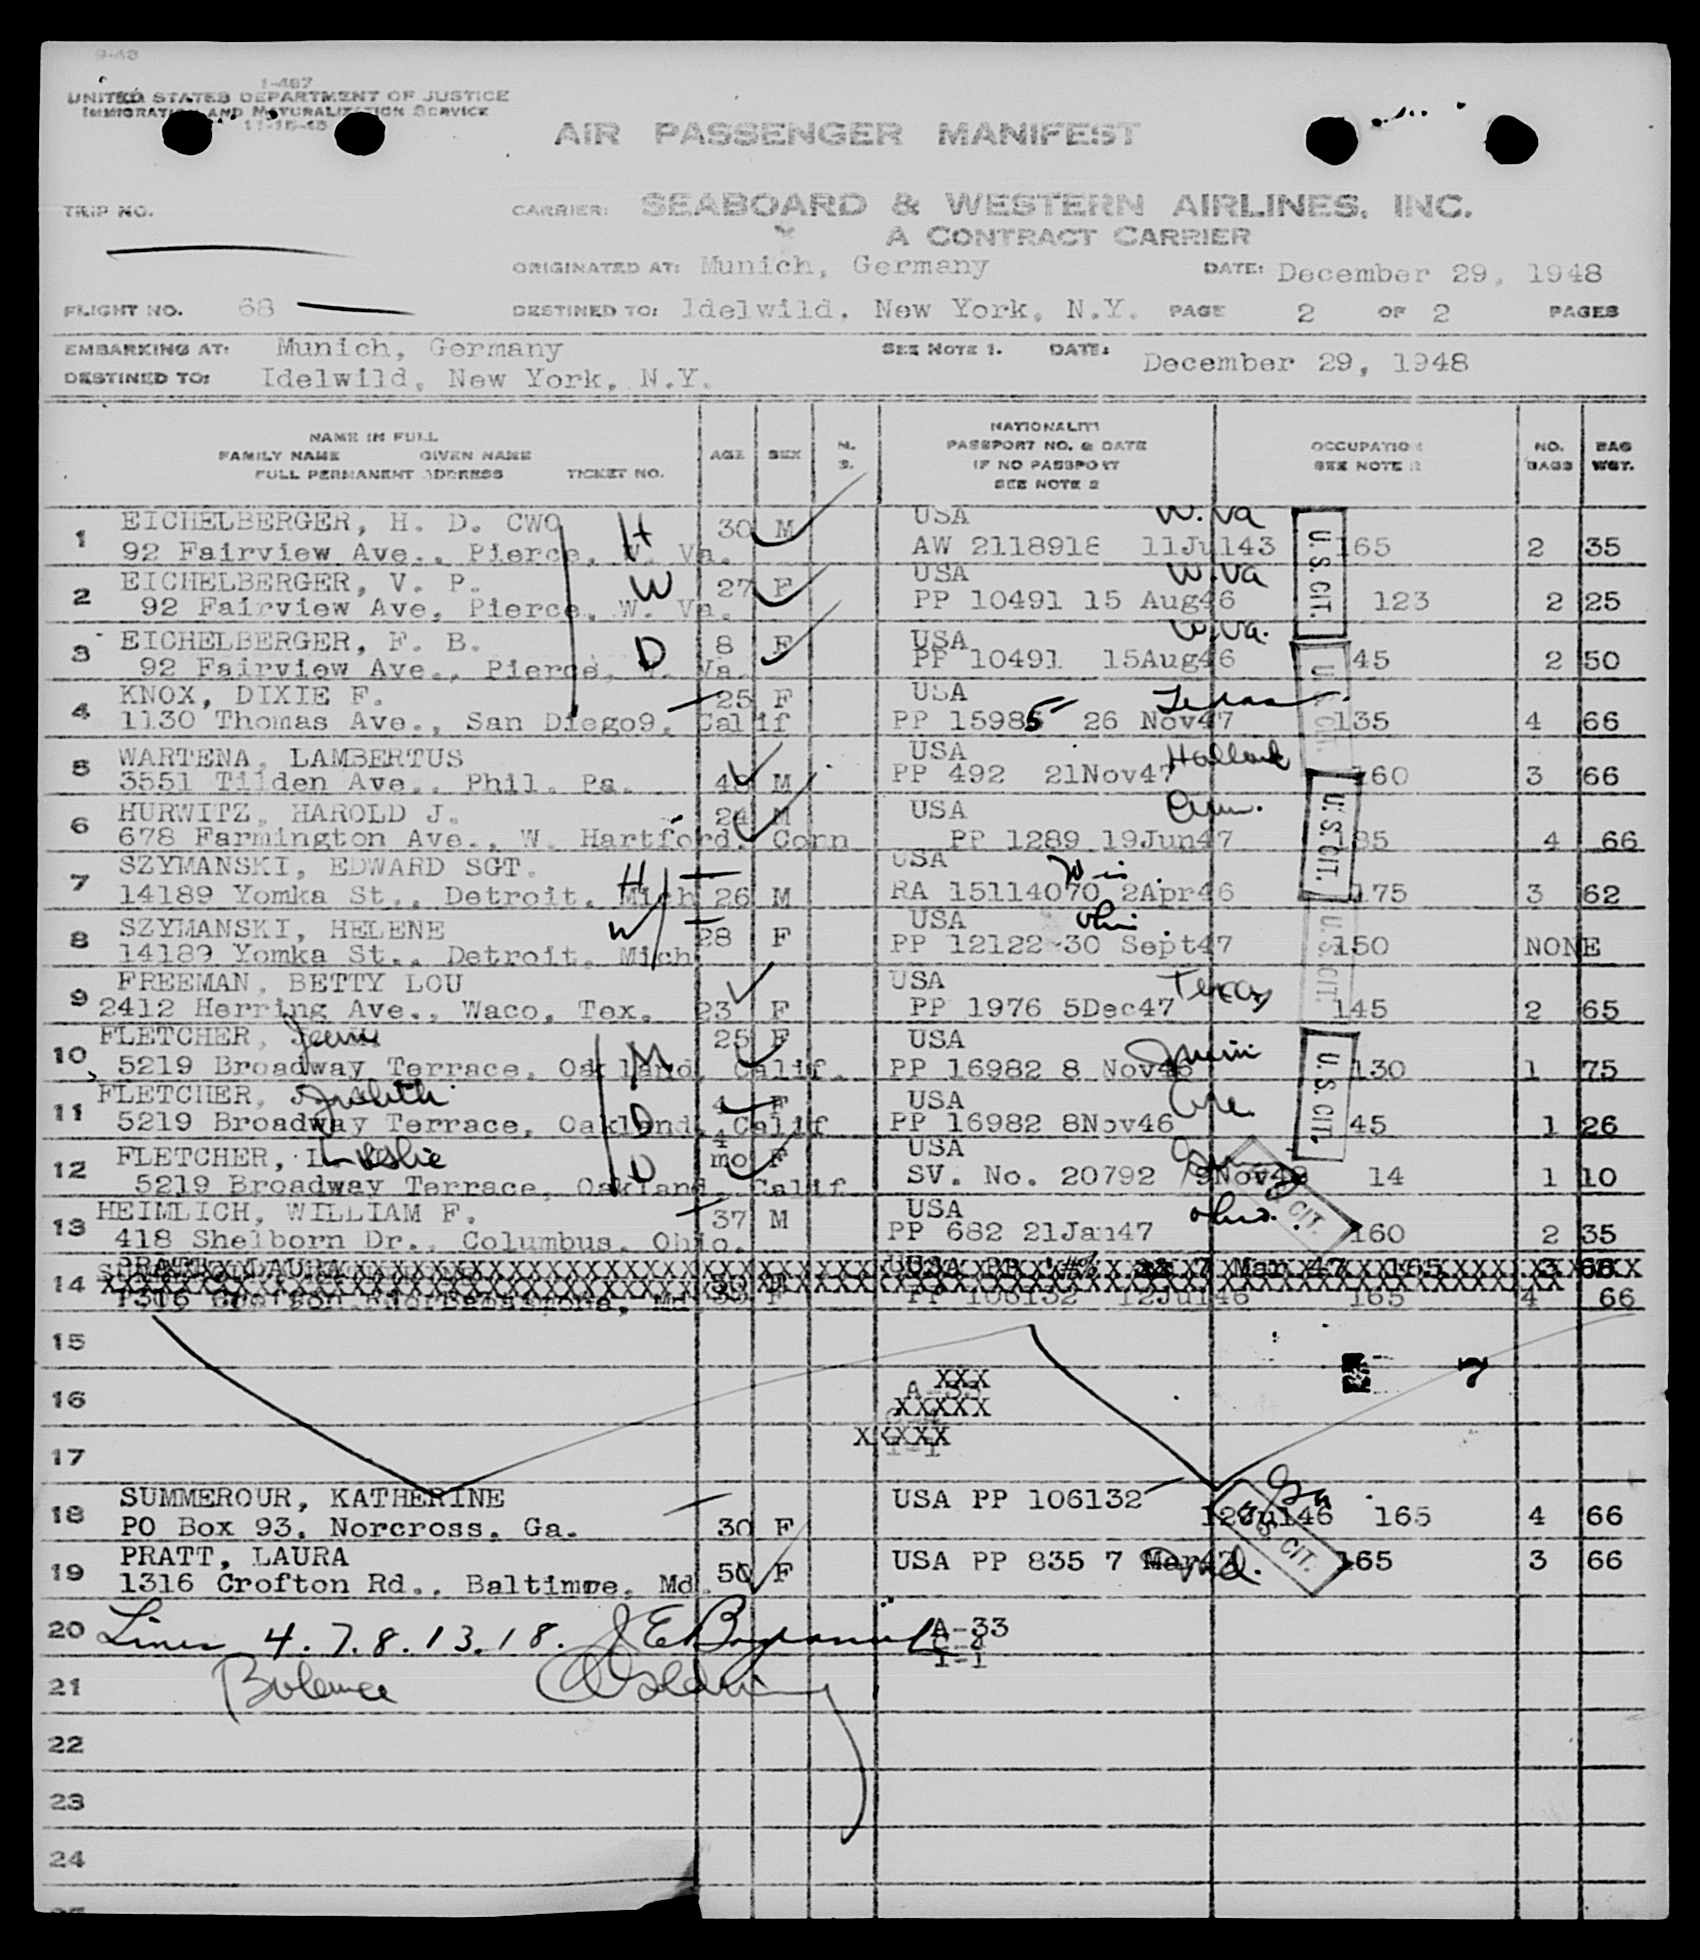 9-48
I-487
UNITED STATES DEPARTMENT OF JUSTICE
IMMIGRATION AND NATURALIZATION SERVICE
11-15-45
AIR PASSENGER MANIFEST
TRIP NO.
CARRIER: SEABOARD & WESTERN AIRLINES, INC.
A CONTRACT CARRIER
ORIGINATED AT: Munich, Germany DATE: December 29, 1948
FLIGHT NO. 68 DESTINED TO: Idelwild, New York, N.Y. PAGE 2 OF 2 PAGES
EMBARKING AT: Munich, Germany SEE NOTE 1. DATE: December 29, 1948
DESTINED TO: Idelwild, New York, N.Y.
NAME IN FULL
FAMILY NAME GIVEN NAME
FULL PERMANENT ADDRESS TICKET NO.
AGE SEX M. S.
NATIONALITY
PASSPORT NO. & DATE
IF NO PASSPORT
SEE NOTE 2
OCCUPATION
SEE NOTE 2
NO. BAGS
BAG WGT.
1 EICHELBERGER, H. D. CWO H 30 M USA W. Va
92 Fairview Ave., Pierce, W. Va. AW 2118918 11Jul43 165 2 35
2 EICHELBERGER, V. P. W 27 F USA W. Va
92 Fairview Ave, Pierce, W. Va. PP 10491 15 Aug46 123 2 25
3 EICHELBERGER, F. B. D 8 F USA W. Va.
92 Fairview Ave., Pierce, W. Va. PP 10491 15Aug46 45 2 50
4 KNOX, DIXIE F. 25 F USA Texas
1130 Thomas Ave., San Diego9, Calif PP 15985 26 Nov47 135 4 66
5 WARTENA, LAMBERTUS USA Holland
3551 Tilden Ave., Phil. Pa. 48 M PP 492 21Nov47 160 3 66
6 HURWITZ, HAROLD J. 24 M USA Conn.
678 Farmington Ave., W. Hartford, Conn PP 1289 19Jun47 185 4 66
7 SZYMANSKI, EDWARD SGT. H USA Wis.
14189 Yomka St., Detroit, Mich 26 M RA 15114070 2Apr46 175 3 62
8 SZYMANSKI, HELENE W 28 F USA Ohio
14189 Yomka St., Detroit, Mich PP 12122 30 Sept47 150 NONE
9 FREEMAN, BETTY LOU USA Texas
2412 Herring Ave., Waco, Tex. 23 F PP 1976 5Dec47 145 2 65
10 FLETCHER, Jean M 25 F USA
5219 Broadway Terrace, Oakland, Calif. PP 16982 8 Nov46 130 1 75
11 FLETCHER, Judith D 4 F USA
5219 Broadway Terrace, Oakland, Calif PP 16982 8Nov46 45 1 26
12 FLETCHER, Leslie D 4 mo F USA
5219 Broadway Terrace, Oakland, Calif SV. No. 20792 9Nov48 14 1 10
13 HEIMLICH, WILLIAM F. 37 M USA Ohio.
418 Shelborn Dr., Columbus, Ohio. PP 682 21Jan47 160 2 35
14 PRATT, LAURA
PP 106132 12Jul46 165 4 66
15
16 XXX
A-33
XXXXX
17 XXXXX
I-1
18 SUMMEROUR, KATHERINE USA PP 106132 Ga
PO Box 93, Norcross, Ga. 30 F 12Jul46 165 4 66
19 PRATT, LAURA USA PP 835 7 Mar47 Md. 165 3 66
1316 Crofton Rd., Baltimore, Md. 50 F
U.S. CIT.
U.S. CIT.
U.S. CIT.
U.S. CIT.
U.S. CIT.
U.S. CIT.
U.S. CIT.
20 Lines 4. 7. 8. 13. 18. A-33
I-1
21 Balance
22
23
24
25